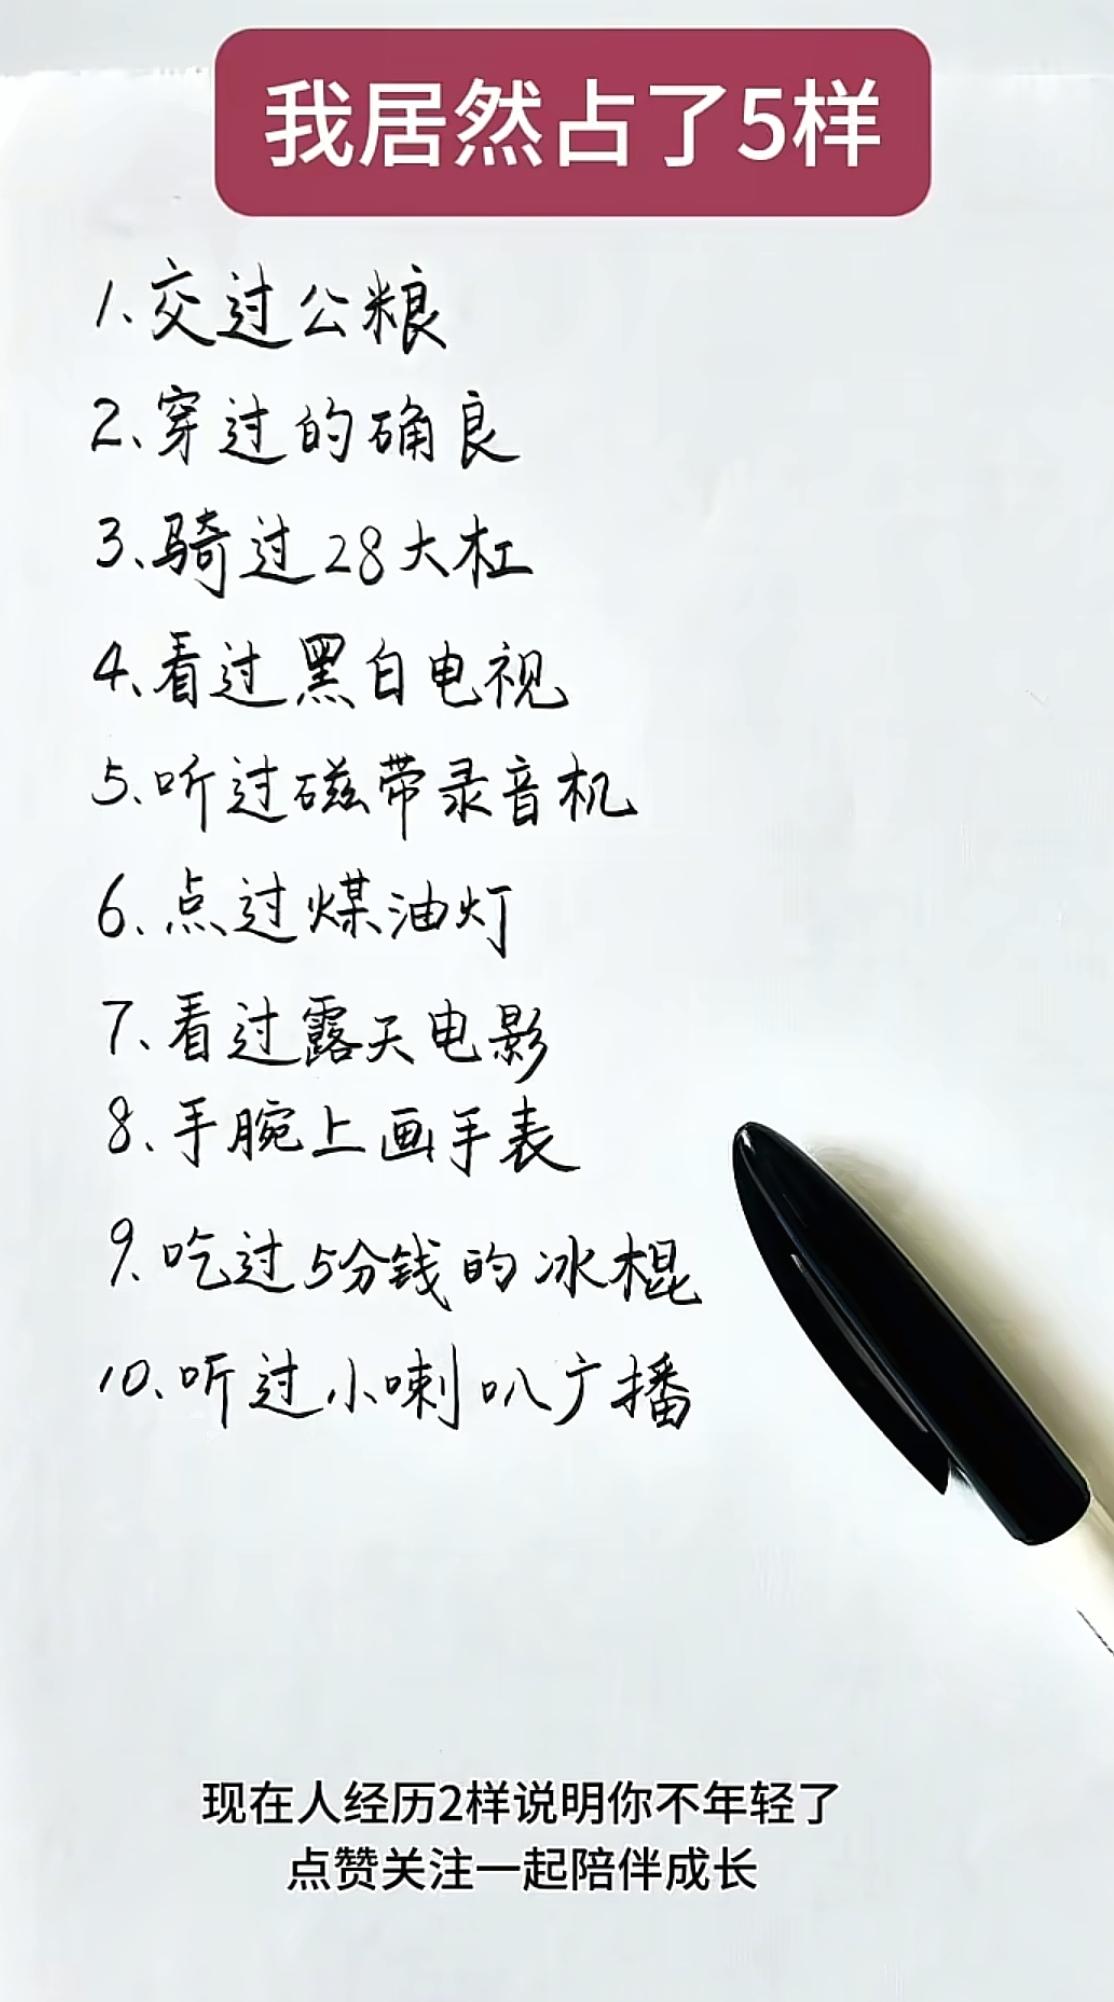 我居然占了5样
1、交过公粮
2、穿过的确良
3、骑过28大杠
4、看过黑白电视
5、听过磁带录音机
6、点过煤油灯
7、看过露天电影
8、手腕上画手表
9、吃过5分钱的冰棍
10、听过小喇叭广播
现在人经历2样说明你不年轻了
点赞关注一起陪伴成长